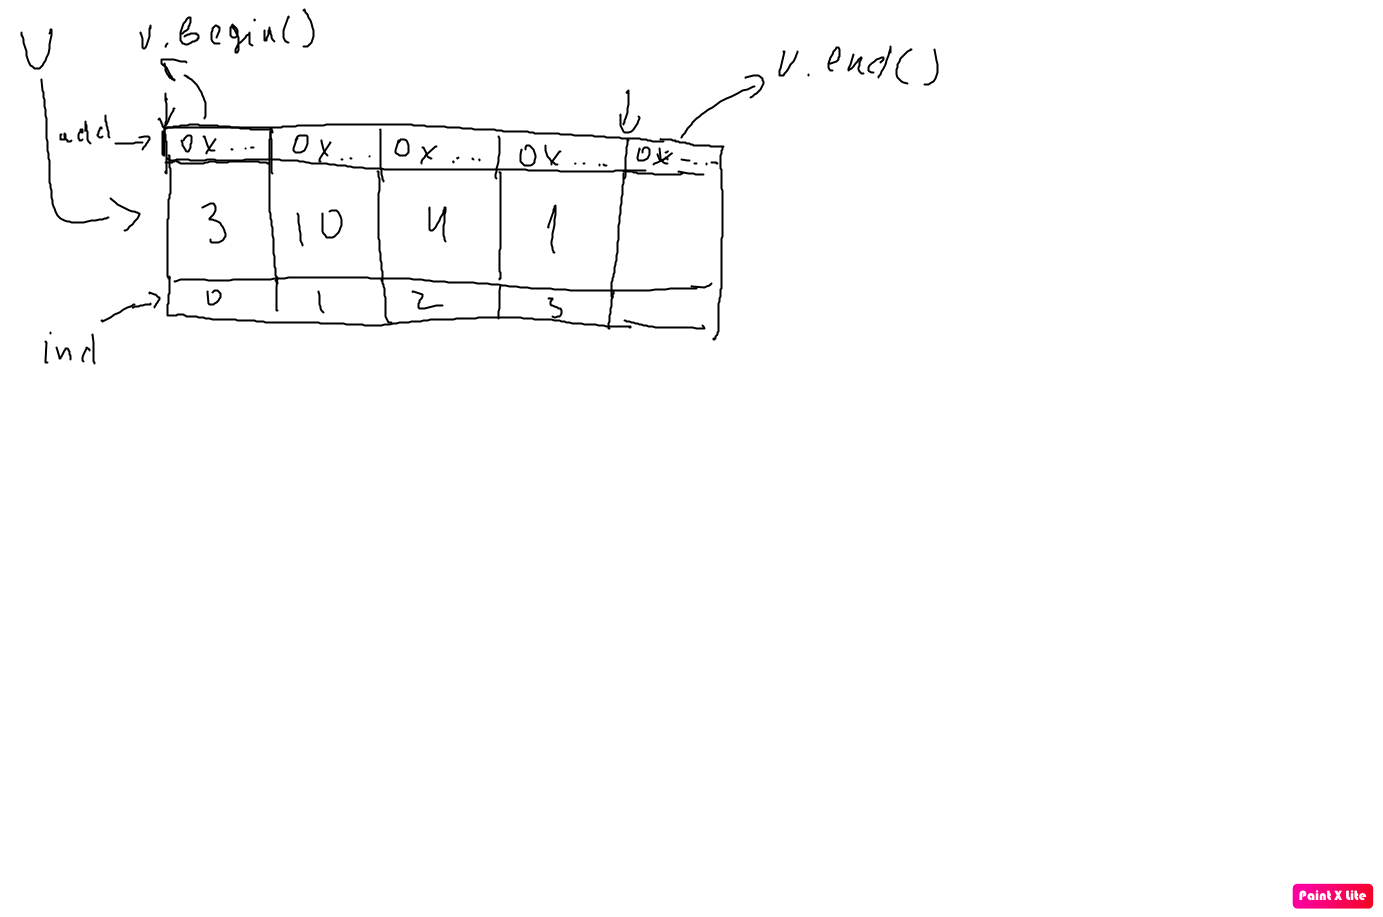 v v.begin() v.end()
add 0x... 0x... 0x... 0x.... 0x....
3 10 4 1
0 1 2 3
ind
Paint X Lite